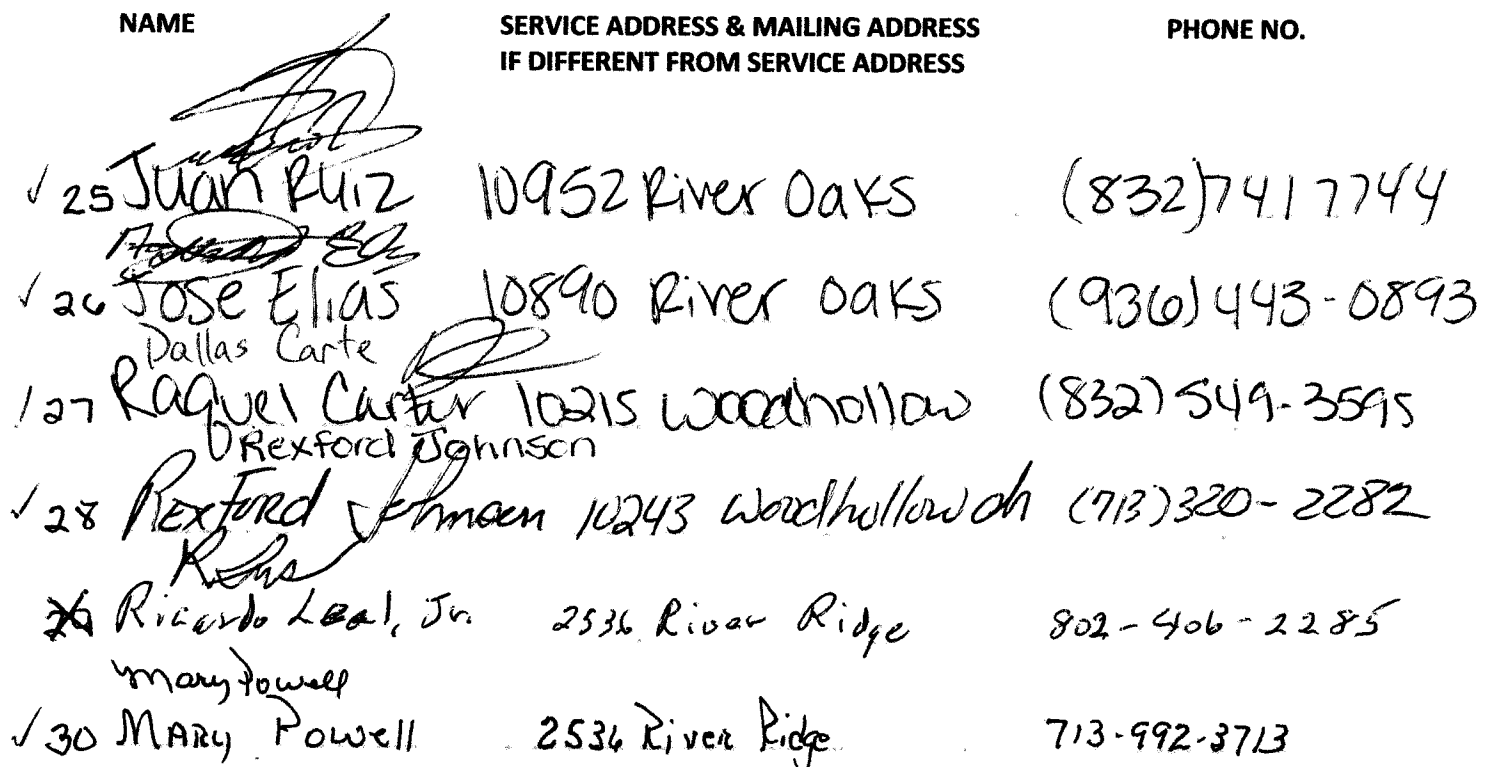 NAME SERVICE ADDRESS & MAILING ADDRESS PHONE NO.
IF DIFFERENT FROM SERVICE ADDRESS
✓ 25 Juan Ruiz 10952 River Oaks (832)741 7744
✓ 26 Jose Elias 10890 River Oaks (936)443-0893
Dallas Carte
/ 27 Raquel Carter 10215 Woodhollow (832)549-3595
Rexford Johnson
✓ 28 Rexford Johnson 10243 Woodhollow dr (713)320-2282
29 Ricardo Leal, Jr. 2536 River Ridge 802-406-2285
Mary Powell
✓ 30 MARY Powell 2536 River Ridge 713-992-3713